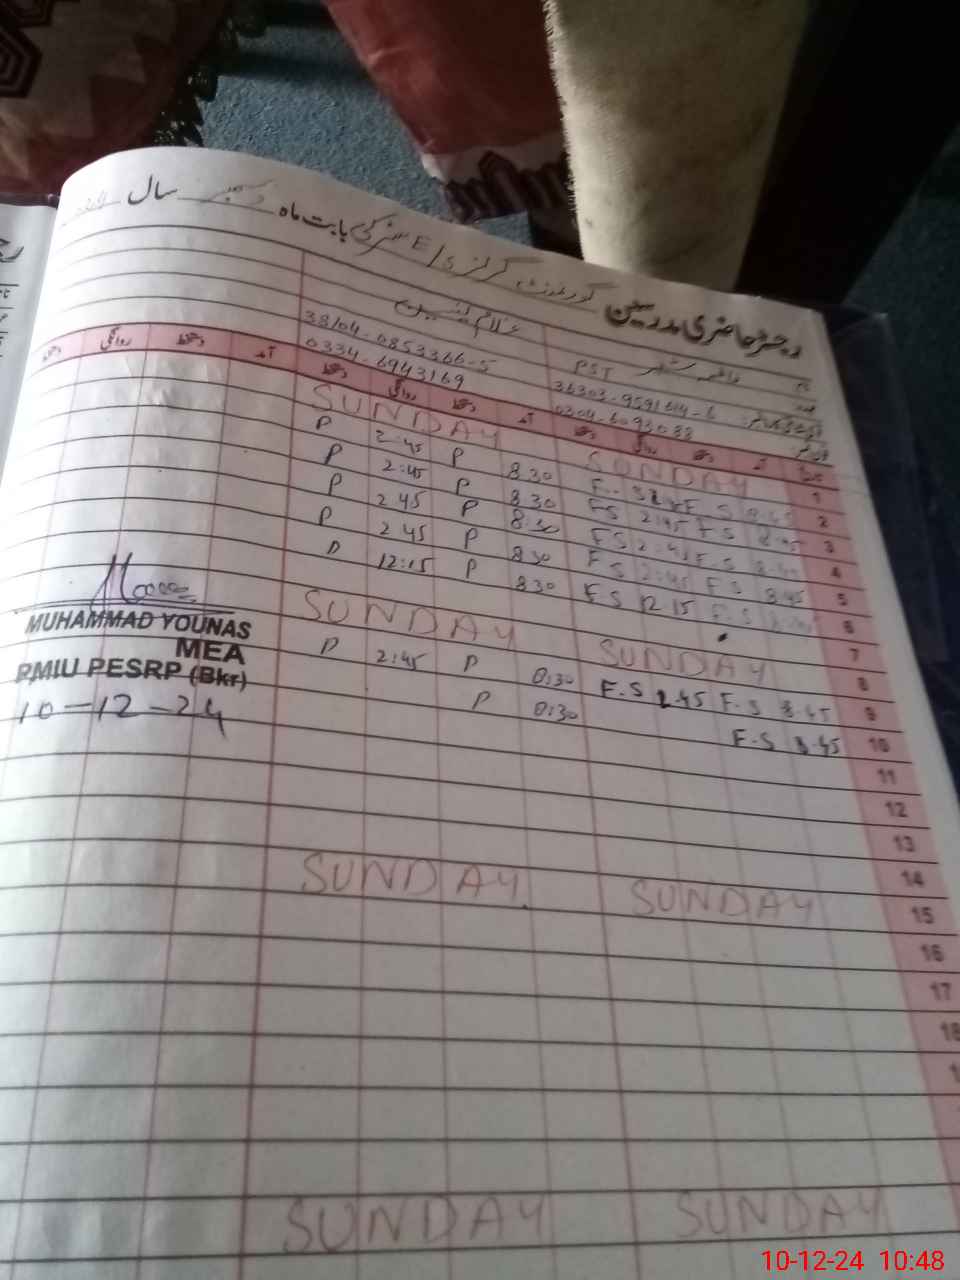 رجسٹر حاضری مدرسین گورنمنٹ گرلز E/S سنٹر کی بابت ماہ دسمبر سال
نام
عہدہ PST
36303-9591614-6
38104-0853366-5
فون نمبر: 0304-6093088
0334-6943169
آمد دستخط روانگی دستخط آمد دستخط روانگی دستخط آمد دستخط روانگی دستخط
1 SUNDAY SUNDAY
2 8.45 F.S F.S 8.30 P 2:45 P
3 8.45 F S 2:45 F S 8.30 P 2:45 P
4 8.45 F.S 2:45 F S 8:30 P 2 45 P
5 8.45 F S 2:45 F S 8 30 P 2 45 P
6 F S 12 15 F.S 8 30 P 12:15 P
7
8 SUNDAY SUNDAY
9 8.45 F.S 2.45 F.S 8:30 P 2:45 P
10 8.45 F.S 8:30 P
11
12
13
14
15 SUNDAY SUNDAY
16
17
18
SUNDAY SUNDAY
MUHAMMAD YOUNAS
MEA
PMIU PESRP (Bkr)
10-12-24
10-12-24 10:48